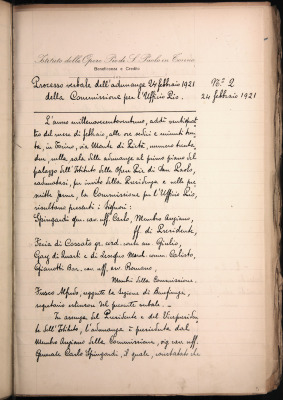 Istituto delle Opere Pie di S. Paolo in Torino
Beneficenza e Credito
Processo verbale dell'adunanza 24 febbraio 1921
della Commissione per l'Ufficio Pio.
N.° 2
24 febbraio 1921
L'anno millenovecentoventuno, addì ventiquat-
tro del mese di febbraio, alle ore sedici e minuti ven-
ti, in Torino, via Monte di Pietà, numero trenta-
due, nella sala delle adunanze al primo piano del
palazzo dell'Istituto delle Opere Pie di San Paolo,
radunatasi, per invito della Presidenza e nelle pre-
scritte forme, la Commissione per l'Ufficio Pio,
risultano presenti i Signori:
Spingardi gen. cav. uff. Carlo, Membro Anziano,
ff. di Presidente,
Feria di Cossato gr. cord. conte avv. Giulio,
Gay di Quarti e di
Gianotti cav. uff. avv. Romano,
Membri della Commissione.
Fusco Alfredo, reggente la sezione di Beneficenza,
segretario estensore del presente verbale.
In assenza del Presidente e del Vicepresiden-
te dell'Istituto, l'adunanza è presieduta dal
Membro Anziano della Commissione, sig. cav. uff.
Generale Carlo Spingardi, il quale, constatato che